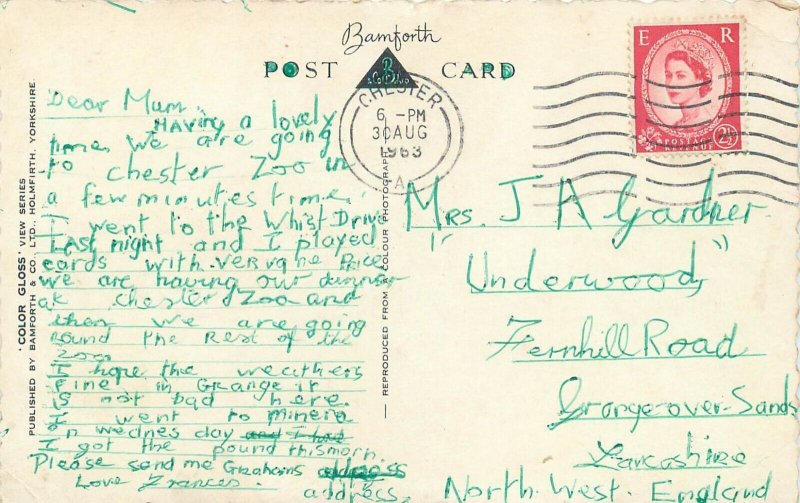 Bamforth
POST CARD
CHESTER
6 - PM
30 AUG
1963
A
E R
POSTAGE
REVENUE
2½
'COLOR GLOSS' VIEW SERIES
PUBLISHED BY BAMFORTH & CO., LTD., HOLMFIRTH, YORKSHIRE
REPRODUCED FROM A COLOUR PHOTOGRAPH
Dear Mum
Having a lovely
time, we are going
to chester Zoo in
a few minuties time.
I went to the Whist Drive
Last night and I played
cards with Price
we are having our dinner
at Chester Zoo and
then we are going
round the Rest of the
Zoo.
I hope the weathers
fine in Grange it
is not bad here.
I went to Minera
on wednesday and I had
I got the pound thismorn
Please send me Grahams address
Love Frances. address.
Mrs. J A Gardner
"Underwood"
Fernhill Road
Grange-over-Sands
Lancashire
North-West-England